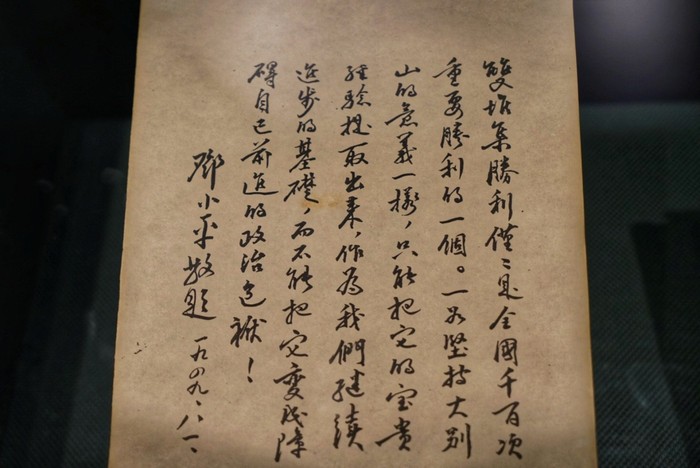 雙堆集勝利僅〻是全國千百次
重要勝利的一個。一如堅持大別
山的意義一樣，只能把它的宝貴
經驗提取出来，作為我們继續
進步的基礎，而不能把它变成障
碍自己前進的政治包袱！
鄧小平敬題 一九四九、八、一、